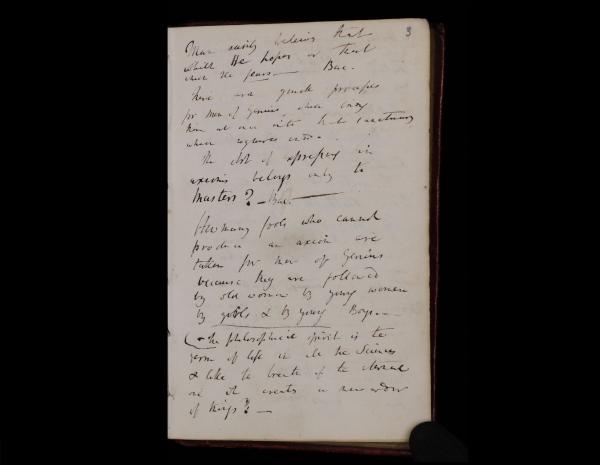 3
Man easily believes that
which He hopes or that
which He fears — Bac.
There are gentle passages
for men of Genius which carry
them at once into that sanctuary
where
The Art of expressing in
axioms belongs only to
Masters? — Bac. —
How many fools who cannot
produce an axiom are
taken for men of Genius
because they are followed
by old women by young women
by girls & by young Boys. —
The philosophical spirit is the
germ of life in all the Sciences
& like the breath of the eternal
one it creates a new order
of things? —